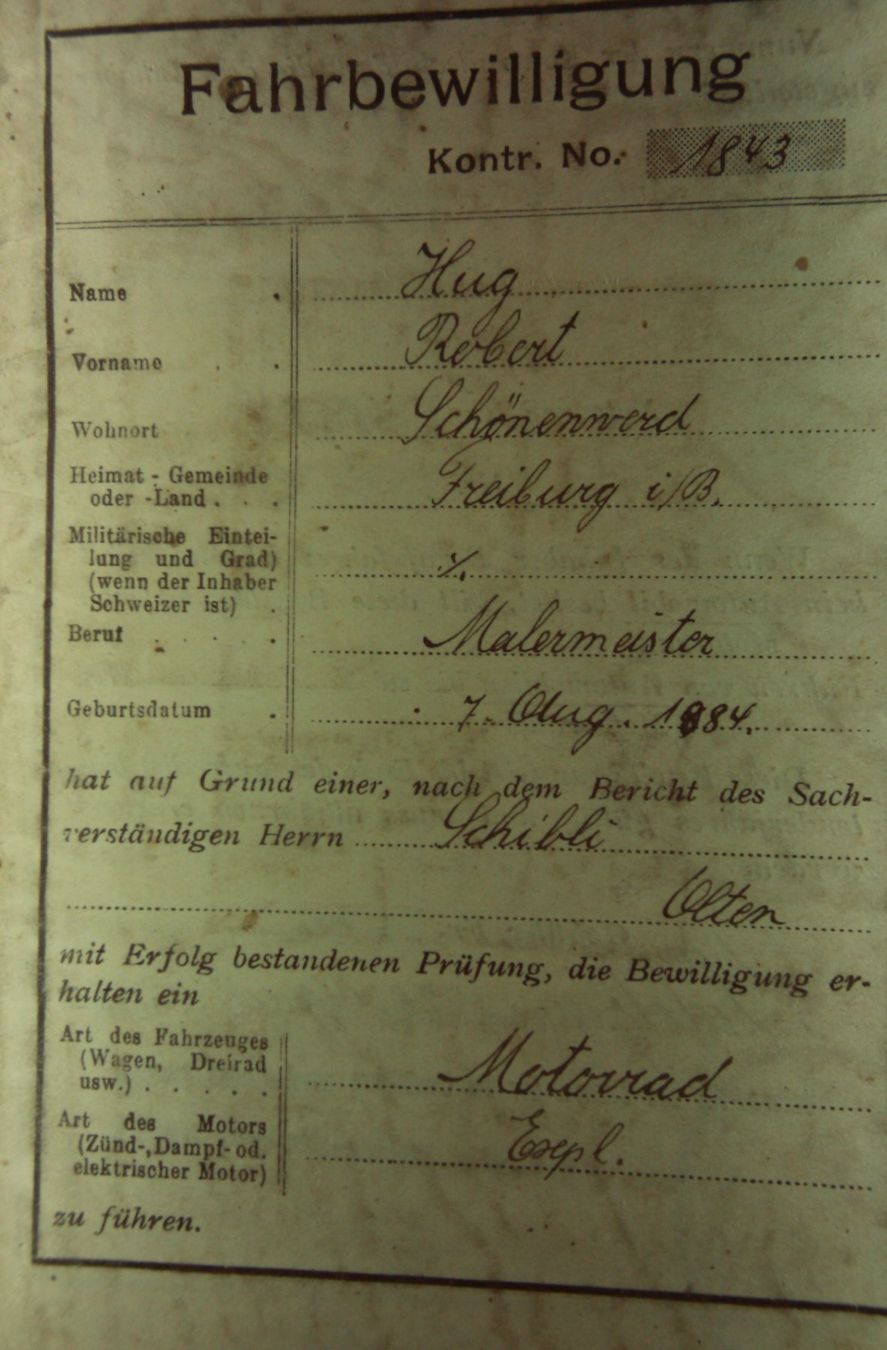 Fahrbewilligung
Kontr. No. 1843
Name . Hug
Vorname . . Robert
Wohnort Schönenwerd
Heimat - Gemeinde
oder -Land . . . Freiburg i/B.
Militärische Eintei-
lung und Grad)
(wenn der Inhaber
Schweizer ist) . ·/.
Beruf . . . . Malermeister
Geburtsdatum . 7. Aug. 1884.
hat auf Grund einer, nach dem Bericht des Sach-
verständigen Herrn Schibli
Olten
mit Erfolg bestandenen Prüfung, die Bewilligung er-
halten ein
Art des Fahrzeuges
(Wagen, Dreirad
usw.) . . . . . Motorrad
Art des Motors
(Zünd-, Dampf- od.
elektrischer Motor) Expl.
zu führen.